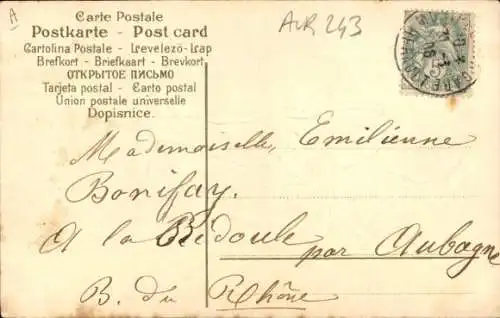 A
Carte Postale
AVR 243
Postkarte - Post card
Cartolina Postale - Levelező-Lap
Brefkort - Briefkaart - Brevkort
ОТКРЫТОЕ ПИСЬМО
Tarjeta postal - Carto postal
Union postale universelle
Dopisnice.
Mademoiselle, Emilienne
Bonifay.
A la Bédoule par Aubagne
B. du Rhône